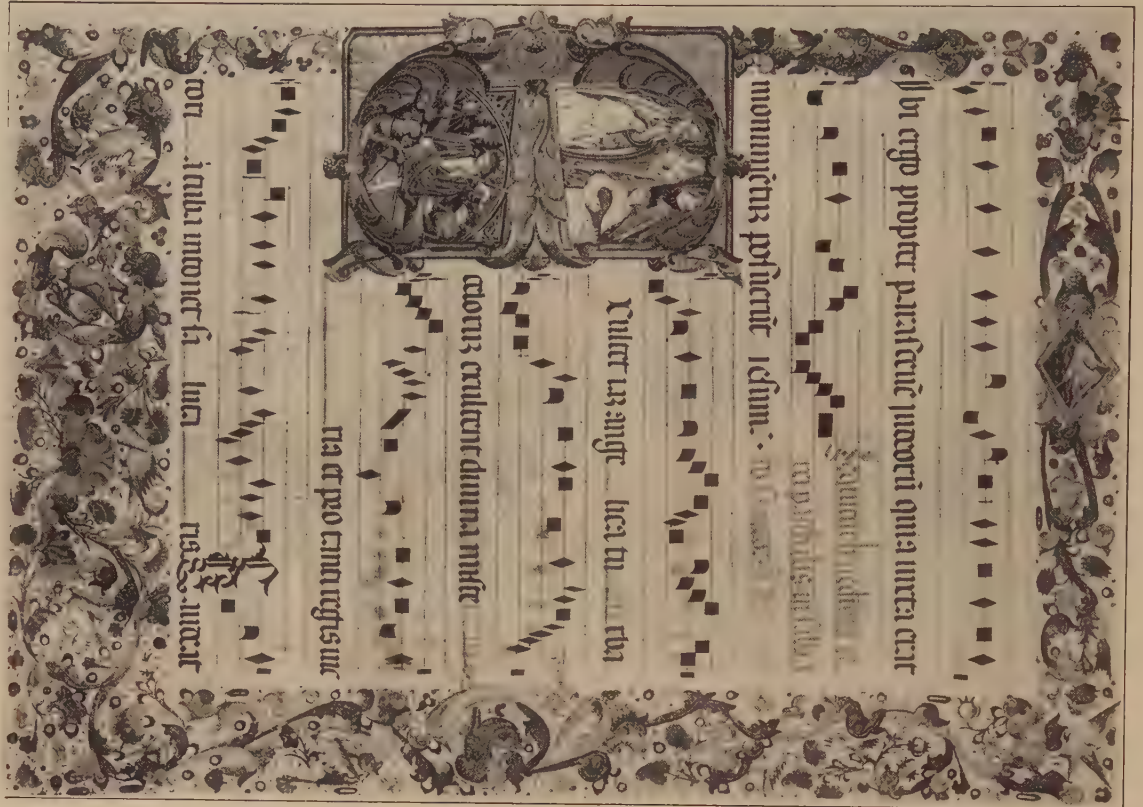 Ibi ergo propter parasceuē iudeorū quia iuxta erat
monumētuz posuerūt iesum.
Xultet iaz ange lica tu rba
celoruz exultent diuina miste
ria et pro tanti regis uic
tori a tuba intonet sa luta ris Gaudeat